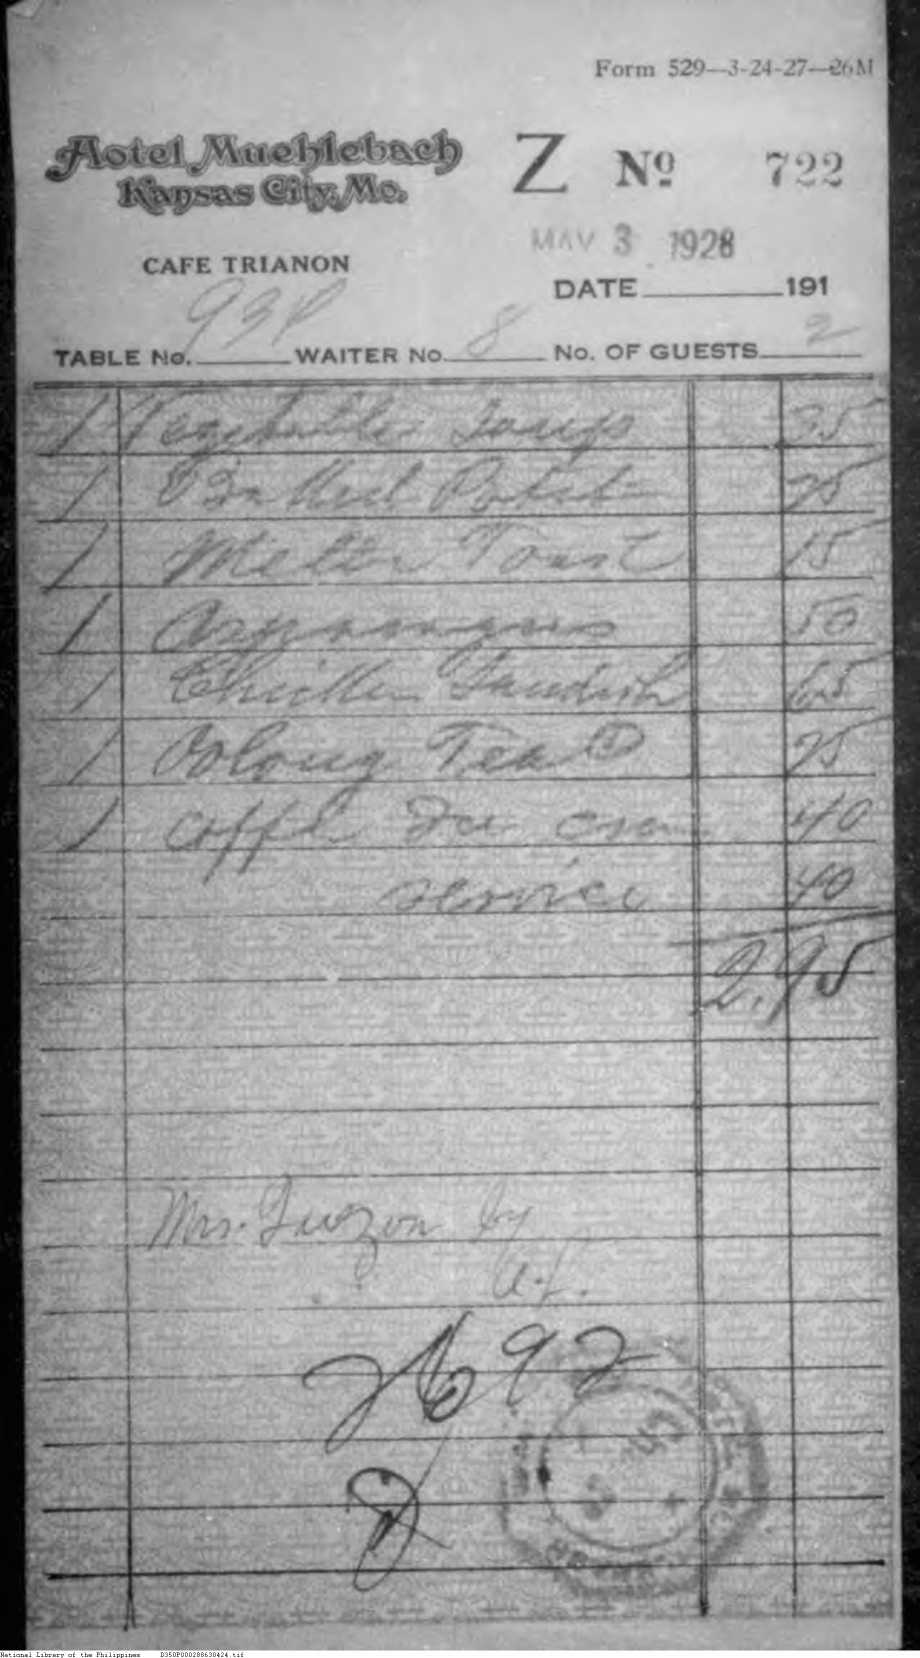 Form 529—3-24-27—26M
Hotel Muehlebach
Kansas City, Mo.
Z No 722
MAY 3 1928
CAFE TRIANON
DATE 191
TABLE No. 934 WAITER No. 8 No. OF GUESTS 2
1 Vegetable Soup 35
1 Baked Potat 25
1 Melba Toast 15
1 Asparagus 50
1 Chicken Sandwich 65
1 Oolong Tea 25
1 40
service 40
2.95
Mrs. Quezon by
A.F.
2692
National Library of the Philippines D350P000288630424.tif